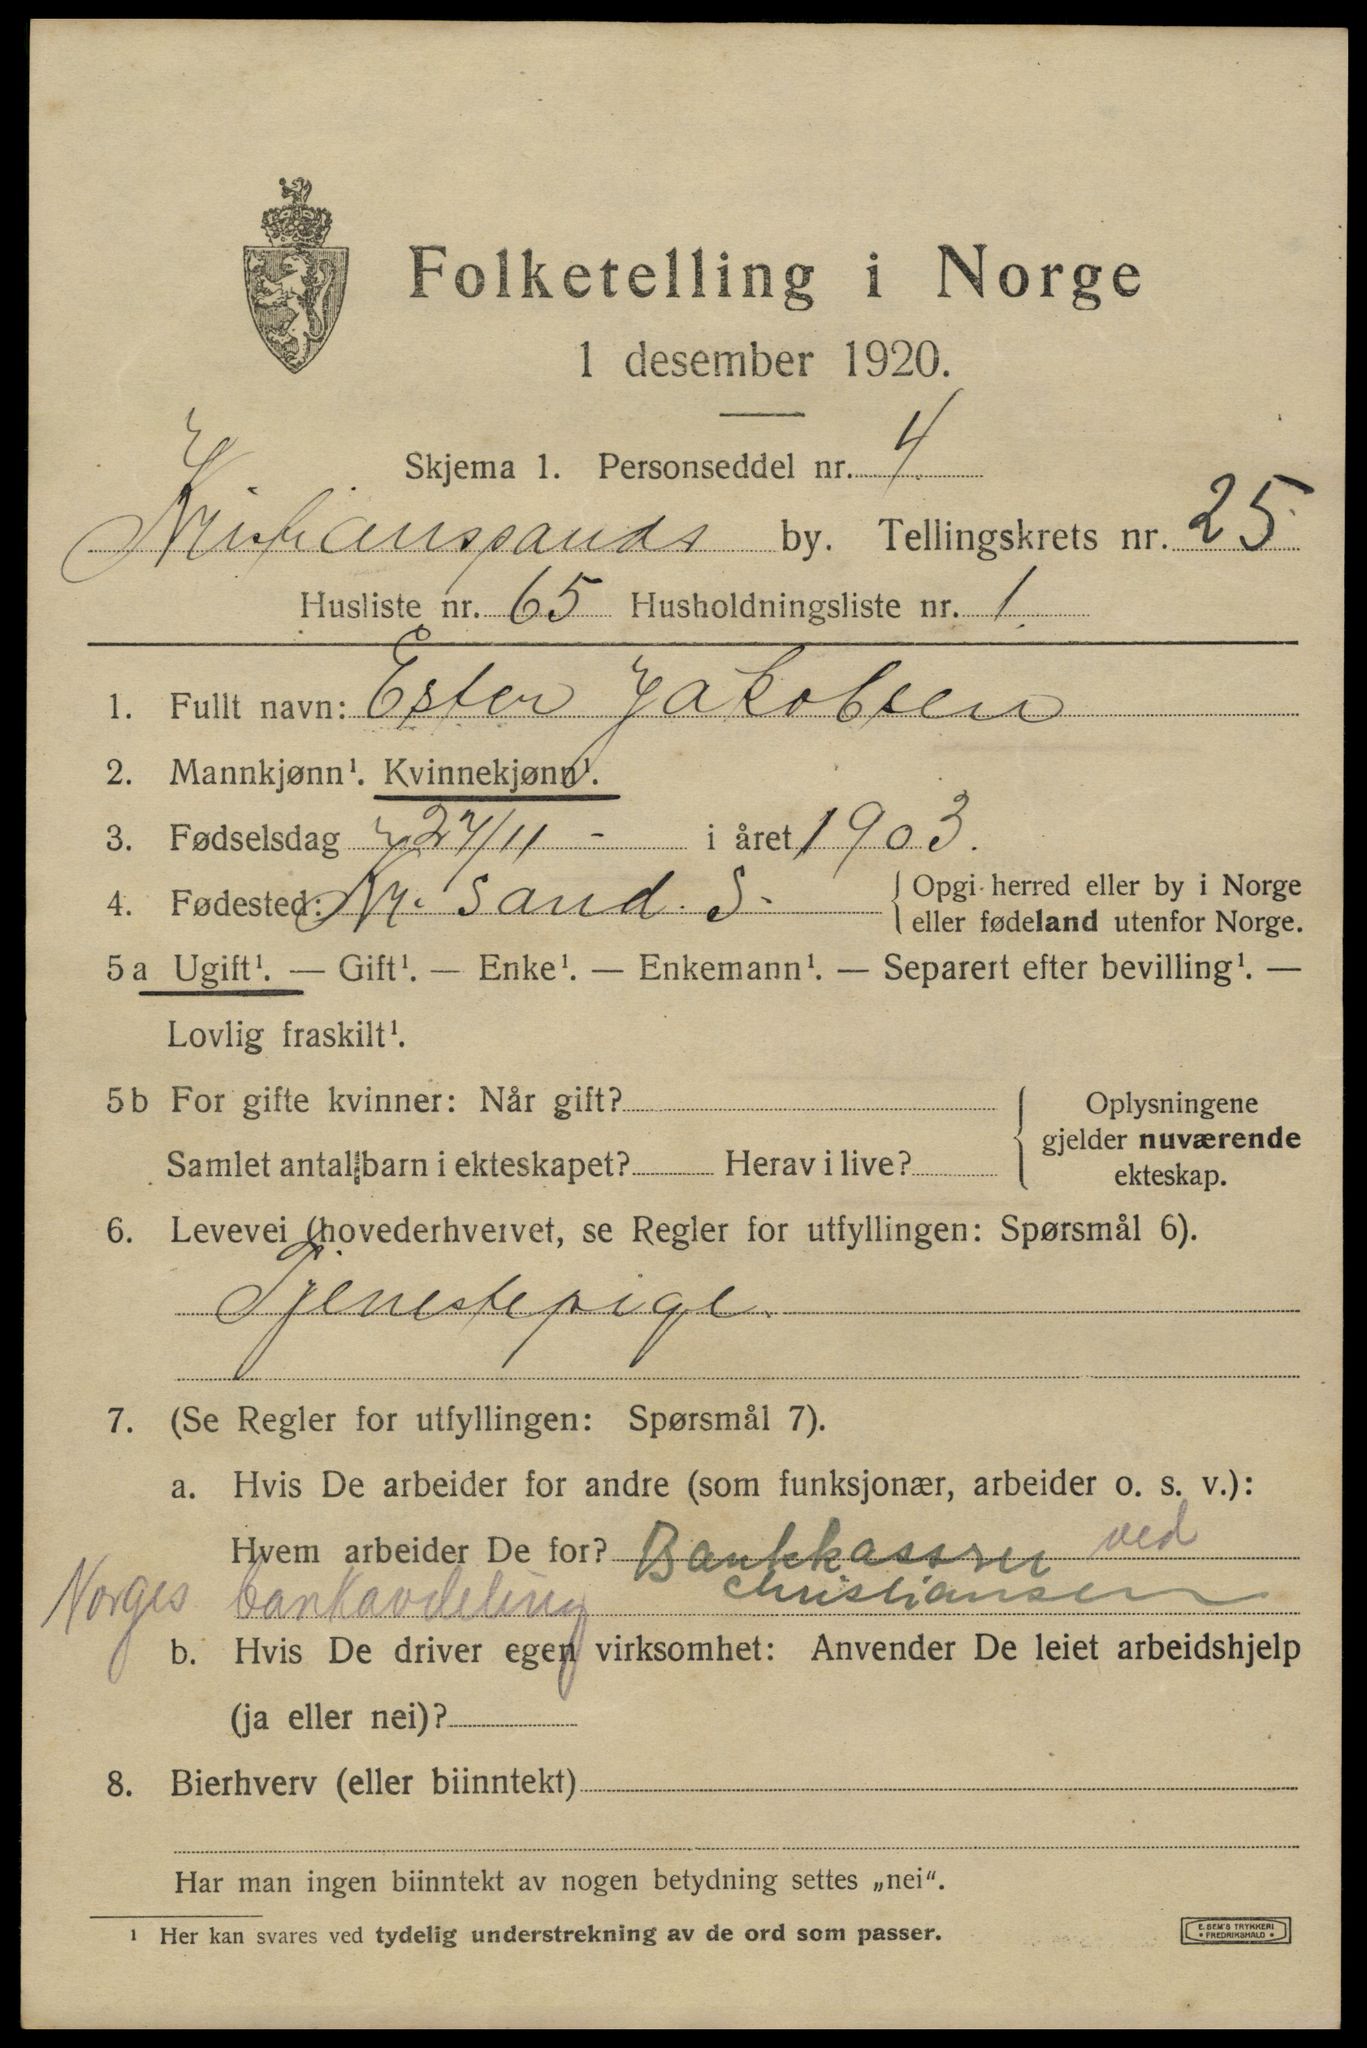 Folketelling i Norge
1 desember 1920.
Skjema 1. Personseddel nr. 4
Kristianssands by. Tellingskrets nr. 25
Husliste nr. 65 Husholdningsliste nr. 1
1. Fullt navn: Ester Jakobsen
2. Mannkjønn¹. Kvinnekjønn¹.
3. Fødselsdag 27/11 - i året 1903.
4. Fødested: Kr. sand. S. { Opgi herred eller by i Norge
eller fødeland utenfor Norge.
5 a Ugift¹. — Gift¹. — Enke¹. — Enkemann¹. — Separert efter bevilling¹. —
Lovlig fraskilt¹.
5 b For gifte kvinner: Når gift? { Oplysningene
gjelder nuværende
ekteskap.
Samlet antal barn i ekteskapet? Herav i live?
6. Levevei (hovederhvervet, se Regler for utfyllingen: Spørsmål 6).
Tjenestepige.
7. (Se Regler for utfyllingen: Spørsmål 7).
a. Hvis De arbeider for andre (som funksjonær, arbeider o. s. v.):
Hvem arbeider De for? Bankkasserer ved
Christiansen
Norges bankavdeling
b. Hvis De driver egen virksomhet: Anvender De leiet arbeidshjelp
(ja eller nei)?
8. Bierhverv (eller biinntekt)
Har man ingen biinntekt av nogen betydning settes „nei“.
¹ Her kan svares ved tydelig understrekning av de ord som passer.
E. SEM'S TRYKKERI
FREDRIKSHALD